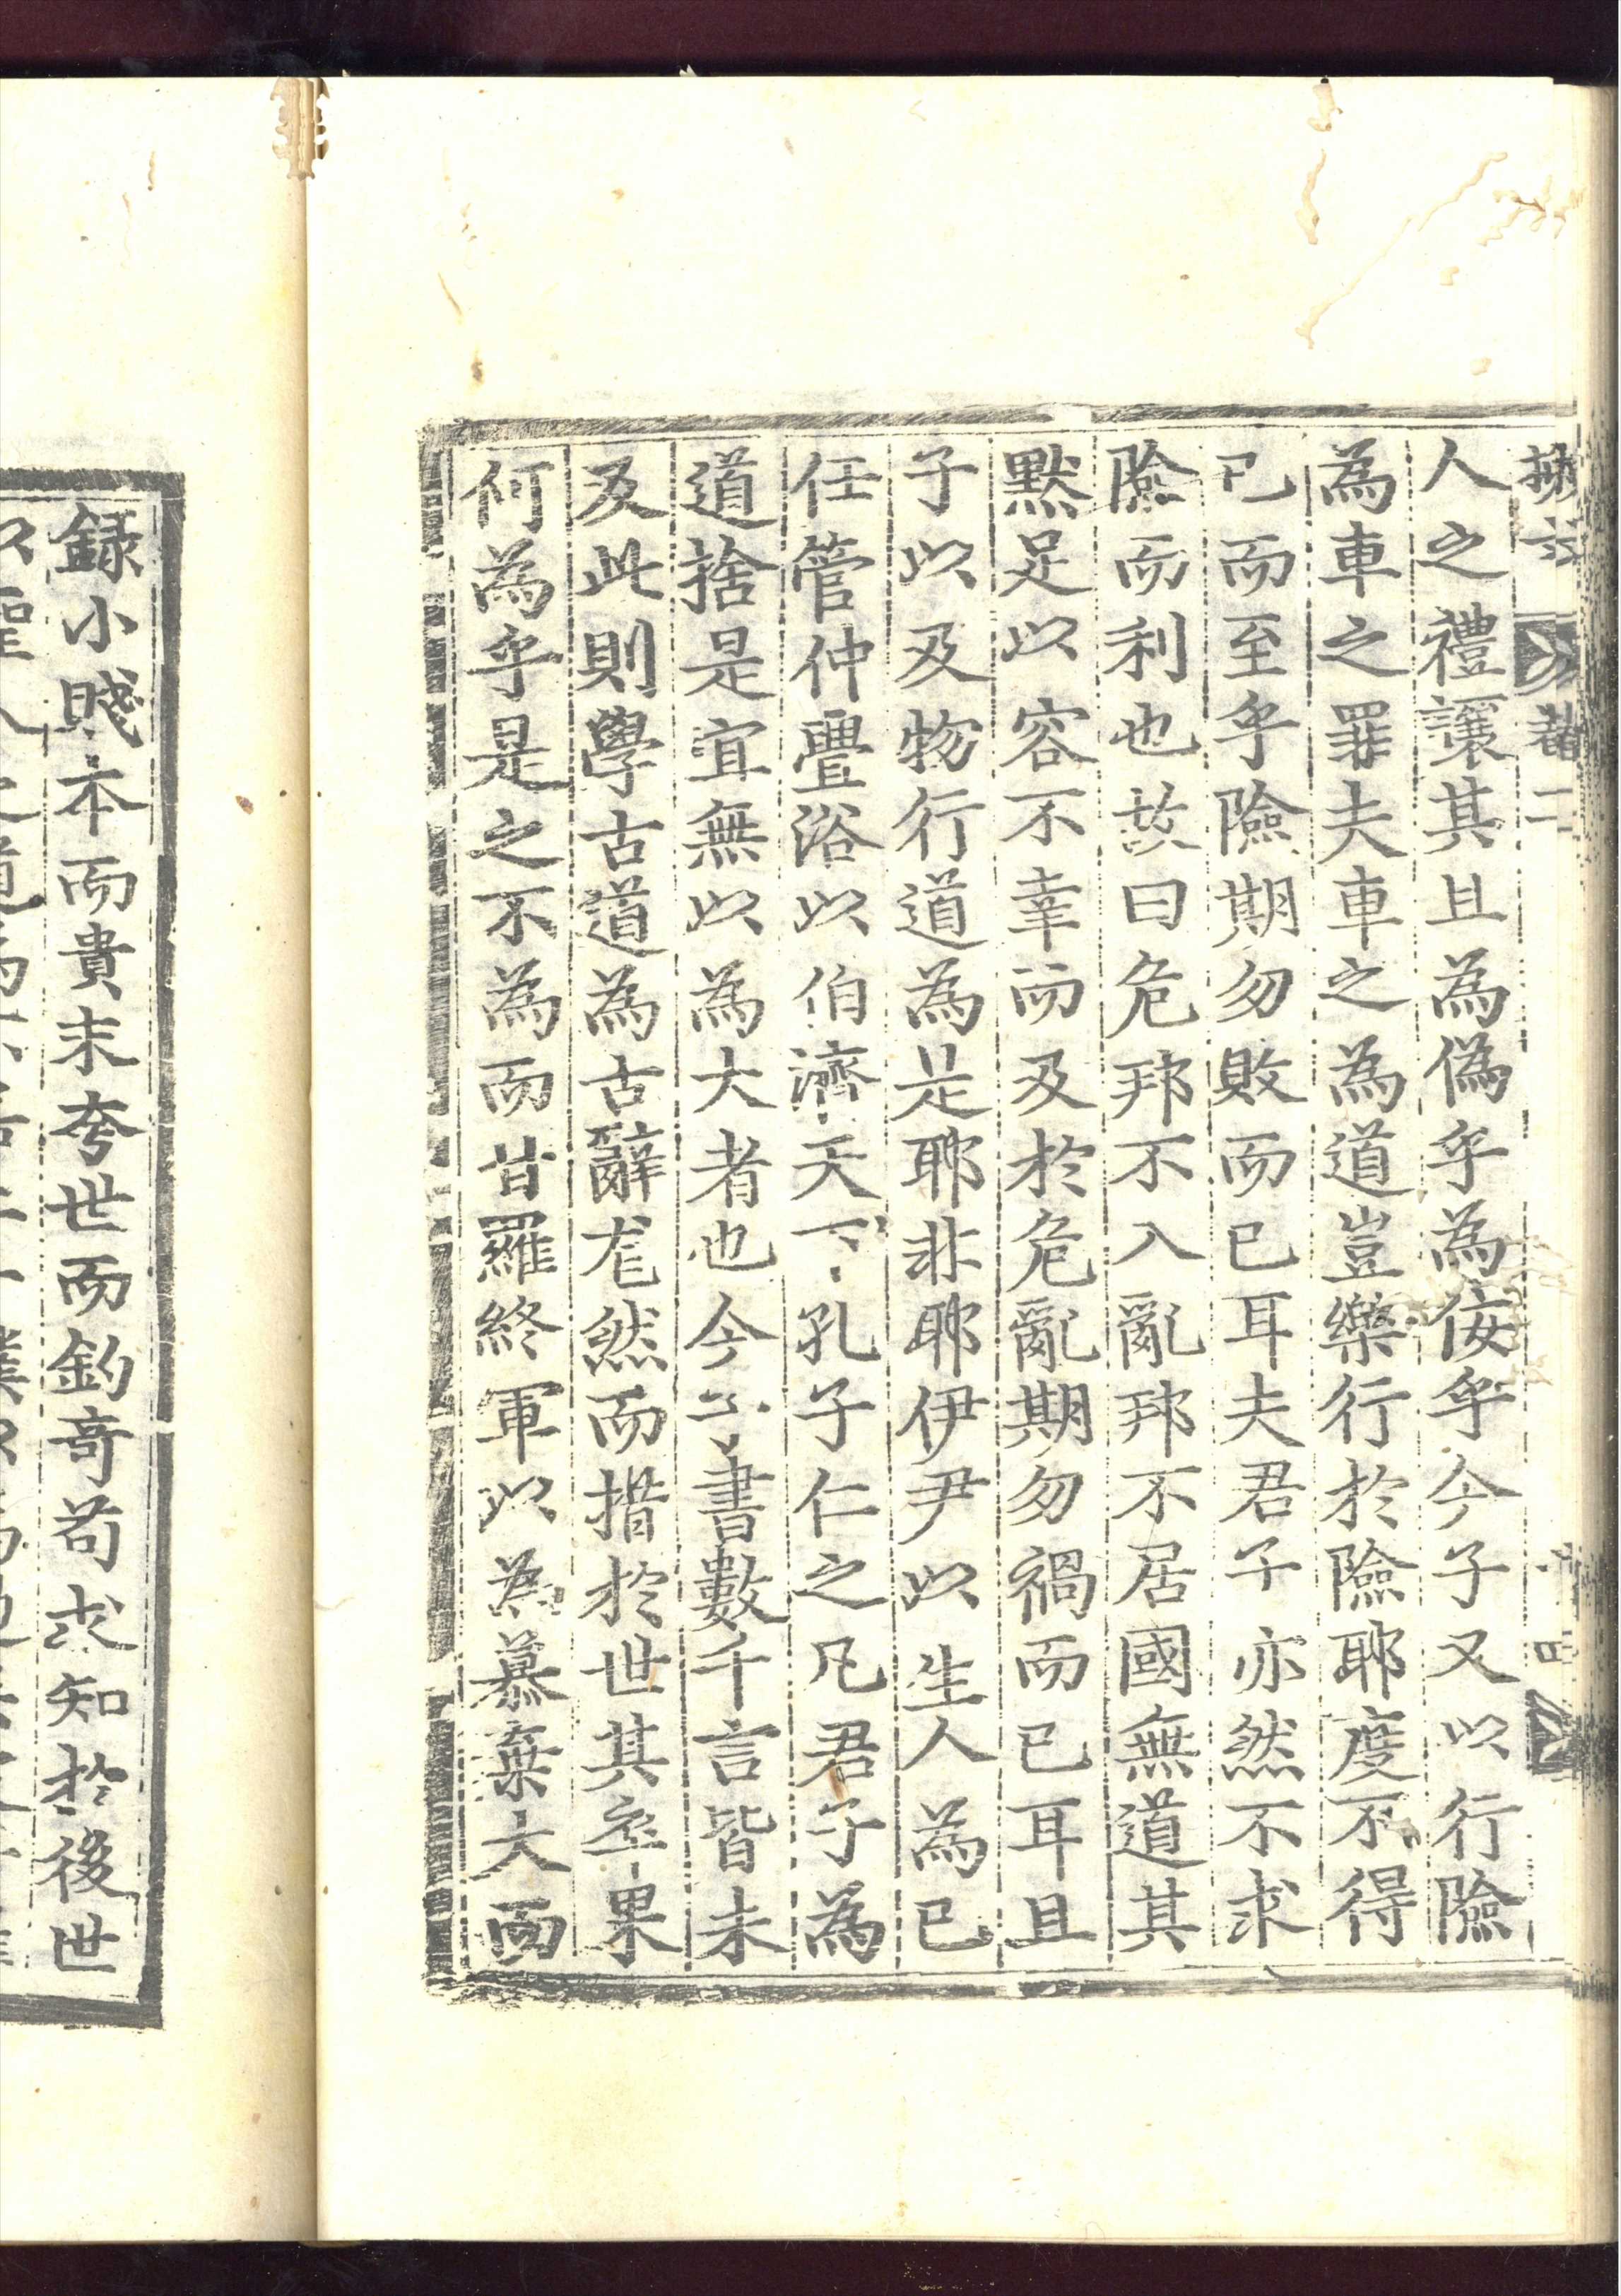 人之禮讓其且為偽乎為佞乎今子又以行險
為車之罪夫車之為道豈樂行於險耶度不得
已而至乎險期勿敗而已耳夫君子亦然不求
險而利也故曰危邦不入亂邦不居國無道其
默足以容不幸而及於危亂期勿禍而已耳且
子以及物行道為是耶非耶伊尹以生人為已
任管仲舋浴以伯濟天下孔子仁之凡君子為
道捨是宜無以為大者也今子書數千言皆未
及此則學古道為古辭尨然而措於世其卒果
何為乎是之不為而甘羅終軍以為慕棄大而
錄小賤本而貴末夸世而釣奇苟求知於後世